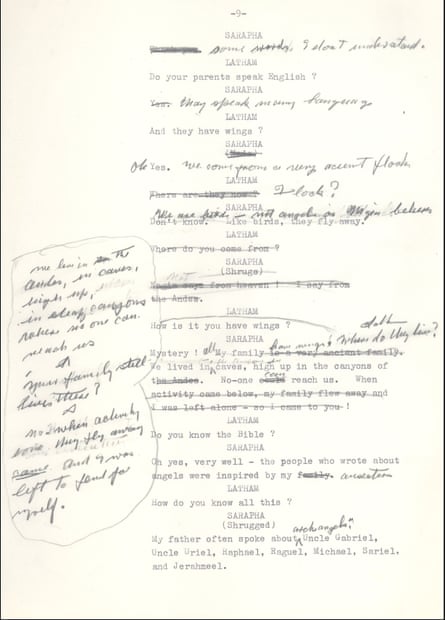 -9-
SARAPHA
some words I dont understand.
LATHAM
Do your parents speak English ?
SARAPHA
Yes. They speak many languages
LATHAM
And they have wings ?
SARAPHA
(Nods)
Oh Yes. We come from a very ancient flock
LATHAM
Where are they now ? Flock?
SARAPHA
We are birds — not angels as believes
Don't know. Like birds, they fly away.
LATHAM
Where do you come from ?
SARAPHA
(Shrugs)
not
says from heaven ! I say from
the Andes.
LATHAM
How is it you have wings ?
SARAPHA
Mystery ! all My family have wings is a very ancient family. Where do they live?
We lived in caves, high up in the canyons of
the Andes. No-one could can reach us. When
activity came below, my family flew away and
I was left alone - so I came to you !
LATHAM
Do you know the Bible ?
SARAPHA
Oh yes, very well - the people who wrote about
angels were inspired by my family. ancestors
LATHAM
How do you know all this ?
SARAPHA
(Shrugged)
archangels
My father often spoke about Uncle Gabriel,
Uncle Uriel, Raphael, Raguel, Michael, Sariel.
and Jerahmeel.
We live in the
Andes, in caves,
high up,
in steep canyons
where no one can
reach us
Your family still
lives there?
No when activity
they fly away
and I was
left to fend for
myself.